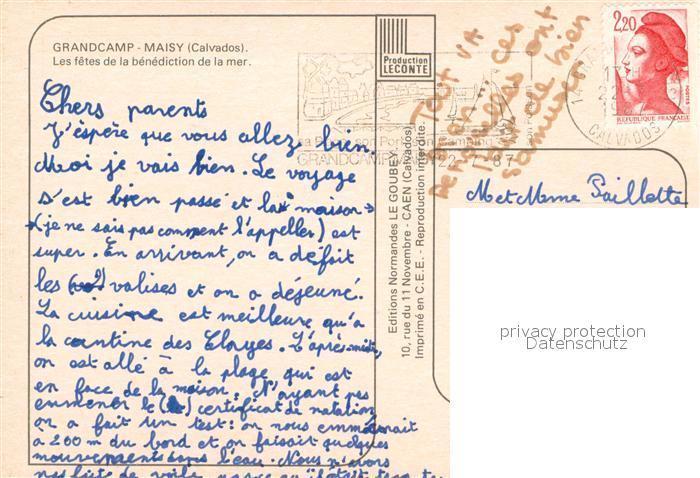 GRANDCAMP - MAISY (Calvados).
Les fêtes de la bénédiction de la mer.
Production
LECONTE
2,20
REPUBLIQUE FRANÇAISE
CALVADOS
GRANDCAMP
22-7-87
Tout va
bien
Editions Normandes LE GOUBEY
10, rue du 11 Novembre - CAEN (Calvados)
Imprimé en C.E.E. - Reproduction interdite.
M et Mme Paillette
Chers parents
J'éspère que vous allez bien.
Moi je vais bien. Le voyage
s'est bien passé et la "maison"
(je ne sais pas comment l'appeller) est
super. En arrivant, on a défait
les valises et on a déjeuné.
La cuisine est meilleure qu'à
la cantine des Cloyes. L'après-midi,
on est allé à la plage qui est
en face de la maison. N'ayant pas
emmener le certificat de natation
on a fait un test: on nous emmenait
à 200 m du bord et on faisait quelques
mouvements dans l'eau. Nous n'avons
pas fait de voile parce qu'il était trop
privacy protection
Datenschutz